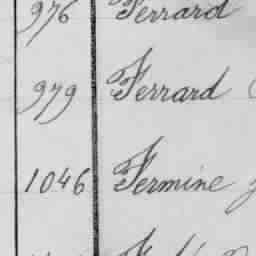 976 Ferrard
979 Ferrard
1046 Fermine